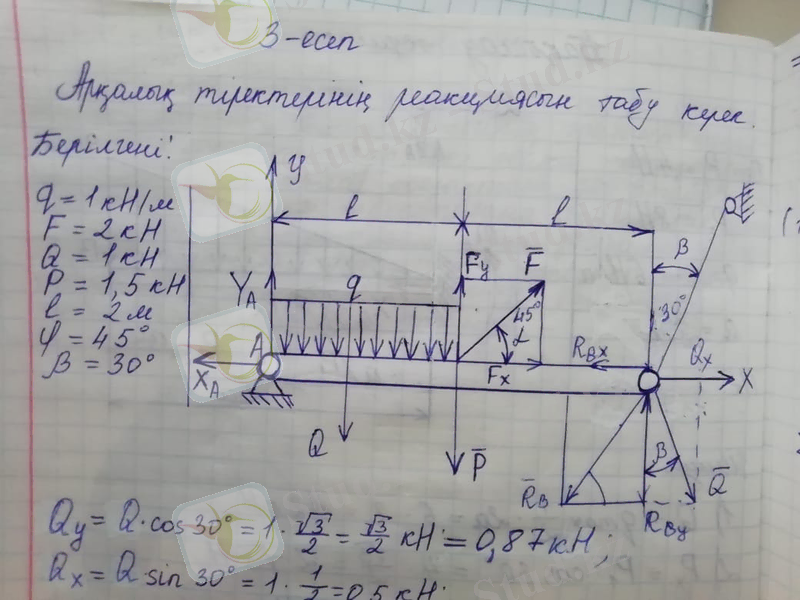 3-есеп
Арқалық тіректерінің реакциясын табу керек.
Берілгені:
q = 1 кН/м
F = 2 кН
Q = 1 кН
P = 1,5 кН
l = 2 м
φ = 45°
β = 30°
y
l
l
β
30°
Fy
F̅
YA
q
45°
α
A
XA
Fx
RBx
Qx
X
Q
P̅
β
R̅B
RBy
Q̅
Qy = Q · cos 30° = 1 · √3/2 = √3/2 кН = 0,87 кН;
Qx = Q sin 30° = 1 · 1/2 = 0,5 кН.